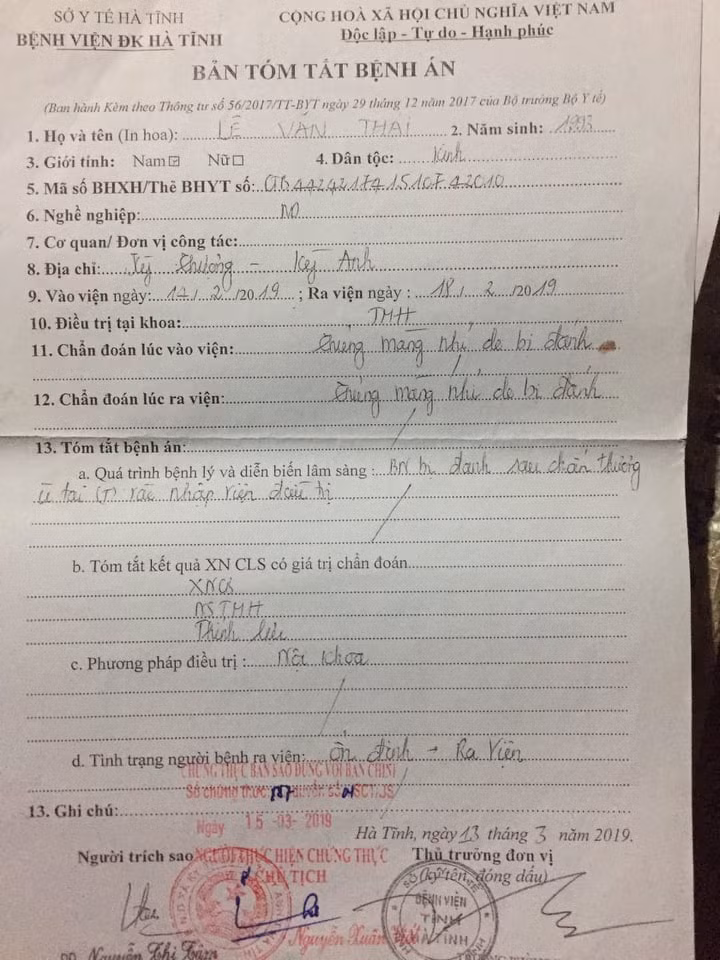 SỞ Y TẾ HÀ TĨNH
BỆNH VIỆN ĐK HÀ TĨNH
CỘNG HOÀ XÃ HỘI CHỦ NGHĨA VIỆT NAM
Độc lập - Tự do - Hạnh phúc
BẢN TÓM TẮT BỆNH ÁN
(Ban hành Kèm theo Thông tư số 56/2017/TT-BYT ngày 29 tháng 12 năm 2017 của Bộ trưởng Bộ Y tế)
1. Họ và tên (In hoa): LÊ VĂN THÁI 2. Năm sinh: 1993
3. Giới tính: Nam☑ Nữ☐ 4. Dân tộc: Kinh
5. Mã số BHXH/Thẻ BHYT số:
6. Nghề nghiệp:
7. Cơ quan/ Đơn vị công tác:
8. Địa chỉ: Kỳ - Kỳ Anh
9. Vào viện ngày: 17/ 2 /2019 ; Ra viện ngày : 18/ 2 /2019
10. Điều trị tại khoa: TMH
11. Chẩn đoán lúc vào viện: Thủng màng nhĩ do bị đánh
12. Chẩn đoán lúc ra viện: Thủng màng nhĩ do bị đánh
13. Tóm tắt bệnh án:
a. Quá trình bệnh lý và diễn biến lâm sàng : BN bị đánh sau chấn thương
ù tai (T) nhập viện điều trị
b. Tóm tắt kết quả XN CLS có giá trị chẩn đoán
NSTMH
Thính lực
c. Phương pháp điều trị : Nội khoa
d. Tình trạng người bệnh ra viện: Ổn định → Ra viện
CHỨNG THỰC BẢN SAO ĐÚNG VỚI BẢN CHÍNH
13. Ghi chú:
Ngày 15 -03- 2019
Hà Tĩnh, ngày 13 tháng 3 năm 2019.
Người trích sao NGƯỜI THỰC HIỆN CHỨNG THỰC Thủ trưởng đơn vị
CHỦ TỊCH (ký tên, đóng dấu)
BỆNH VIỆN
TỈNH
HÀ TĨNH
Nguyễn Xuân
Nguyễn Thị